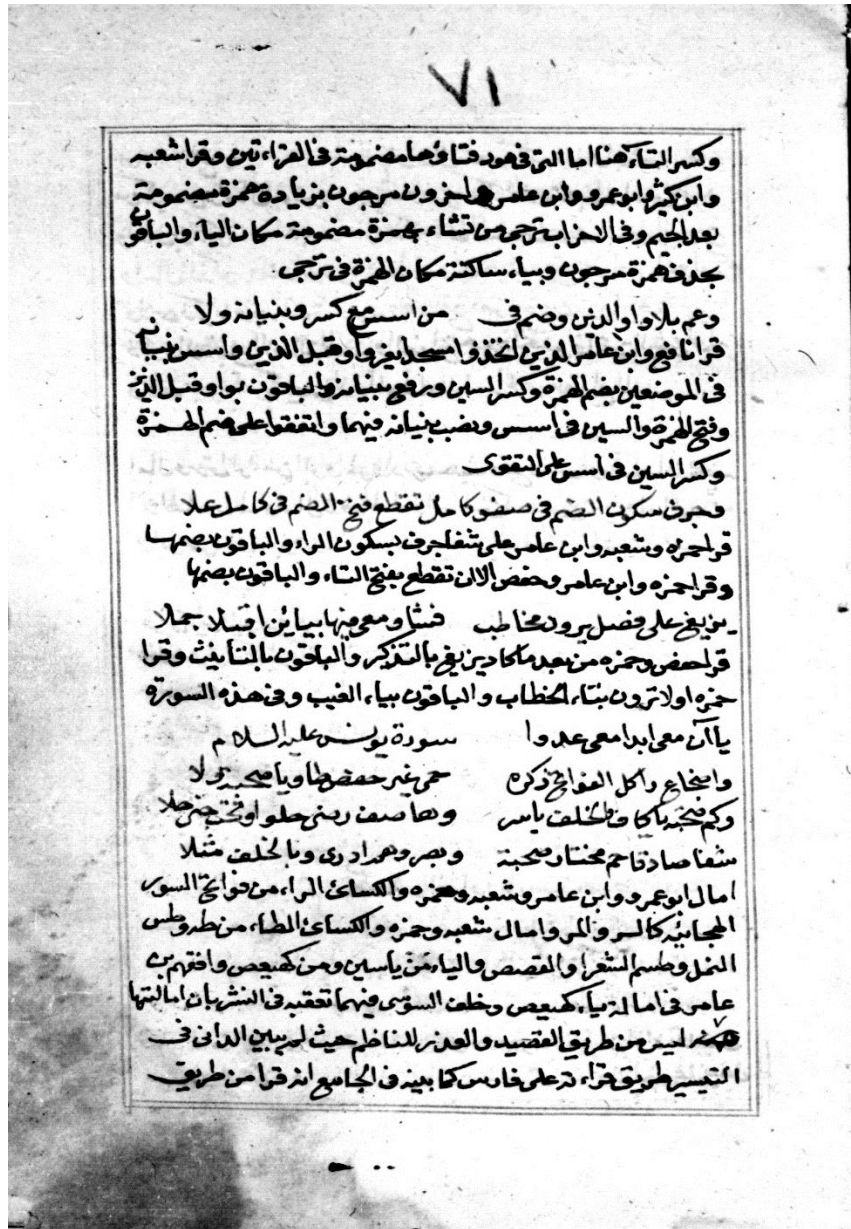 ٧١
وكسر التاء هنا اما التى فى هود فتاؤها مضمومة فى القراءتين وقرا شعبه
وابن كثير وابو عمرو وابن عامر واخرون مرجون بزيادة همزة مضمومة
بعد الجيم وفى الاحزاب ترجى من تشاء بهمزة مضمومة مكان الياء والباقون
بحذف همزة مرجون وبياء ساكنة مكان الهمزة فى ترجى
وعم بلا واو الذين وضم فى من اسس مع كسر وبنيانه ولا
قرا نافع وابن عامر الذين اتخذوا مسجدا بغير واو قبل الذين واسس بنيانه
فى الموضعين بضم الهمزة وكسر السين ورفع بنيانه والباقون بواو قبل الذين
وفتح الهمزة والسين فى اسس ونصب بنيانه فيهما واتفقوا على ضم الهمزة
وكسر السين فى اسس على التقوى
وجرف سكون الضم فى صفو كامل تقطع فتح الضم فى كامل علا
قرا حمزه وشعبه وابن عامر على شفا جرف بسكون الراء والباقون بضمها
وقرا حمزه وابن عامر وحفص الا ان تقطع بفتح التاء والباقون بضمها
يزيغ على فصل يرون مخاطب فشا ومعى فيها بيائين اقبلا جملا
قرا حفص وحمزه من بعد ما كاد يزيغ بالتذكير والباقون بالتأنيث وقرا
حمزه اولا ترون بتاء الخطاب والباقون بياء الغيب وفى هذه السورة
ياآن معى ابدا معى عدوا سورة يونس عليه السلام
واضجاع را كل الفواتح ذكره حمى غير حفص طا ويا صحبة ولا
وكم صحبة يا كاف والخلف ياسر وها صف رضى حلوا وتحت جنى حلا
شفا صادقا حم مختار صحبة وبصر وهم ادرى وبالخلف مثلا
امال ابو عمرو وابن عامر وشعبه وحمزه والكسائى الراء من فواتح السور
الهجائيه كالر والمر وامال شعبه وحمزه والكسائى الطاء من طه وطس
النمل وطسم الشعرا والقصص والياء من ياسين ومن كهيعص وافقهم بن
عامر فى امالة ياء كهيعص وخلف السوسى فيهما تعقبه فى النشر بان امالتها
ليس من طريق القصيد والعذر للناظم حيث لم يبين الدانى فى
التيسير طريق قراءته على فارس كما بينه فى الجامع انه قرا من طريق